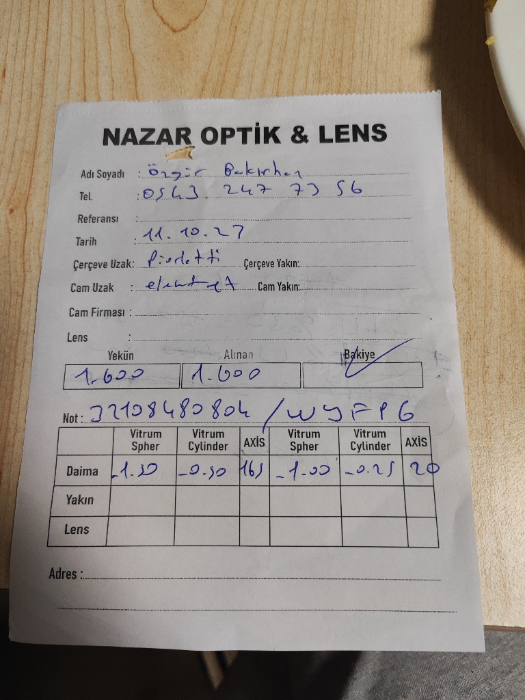 NAZAR OPTİK & LENS
Adı Soyadı : Özgür
Tel. : 0543 247 73 56
Referansı :
Tarih : 11.10.23
Çerçeve Uzak: Çerçeve Yakın:
Cam Uzak : Cam Yakın:
Cam Firması :
Lens :
Yekün Alınan Bakiye
1.600 1.600
Not : 32108480804 / WYFPG
Vitrum Spher Vitrum Cylinder AXİS Vitrum Spher Vitrum Cylinder AXİS
Daima -1.50 -0.50 165 -1.00 -0.25 20
Yakın
Lens
Adres :